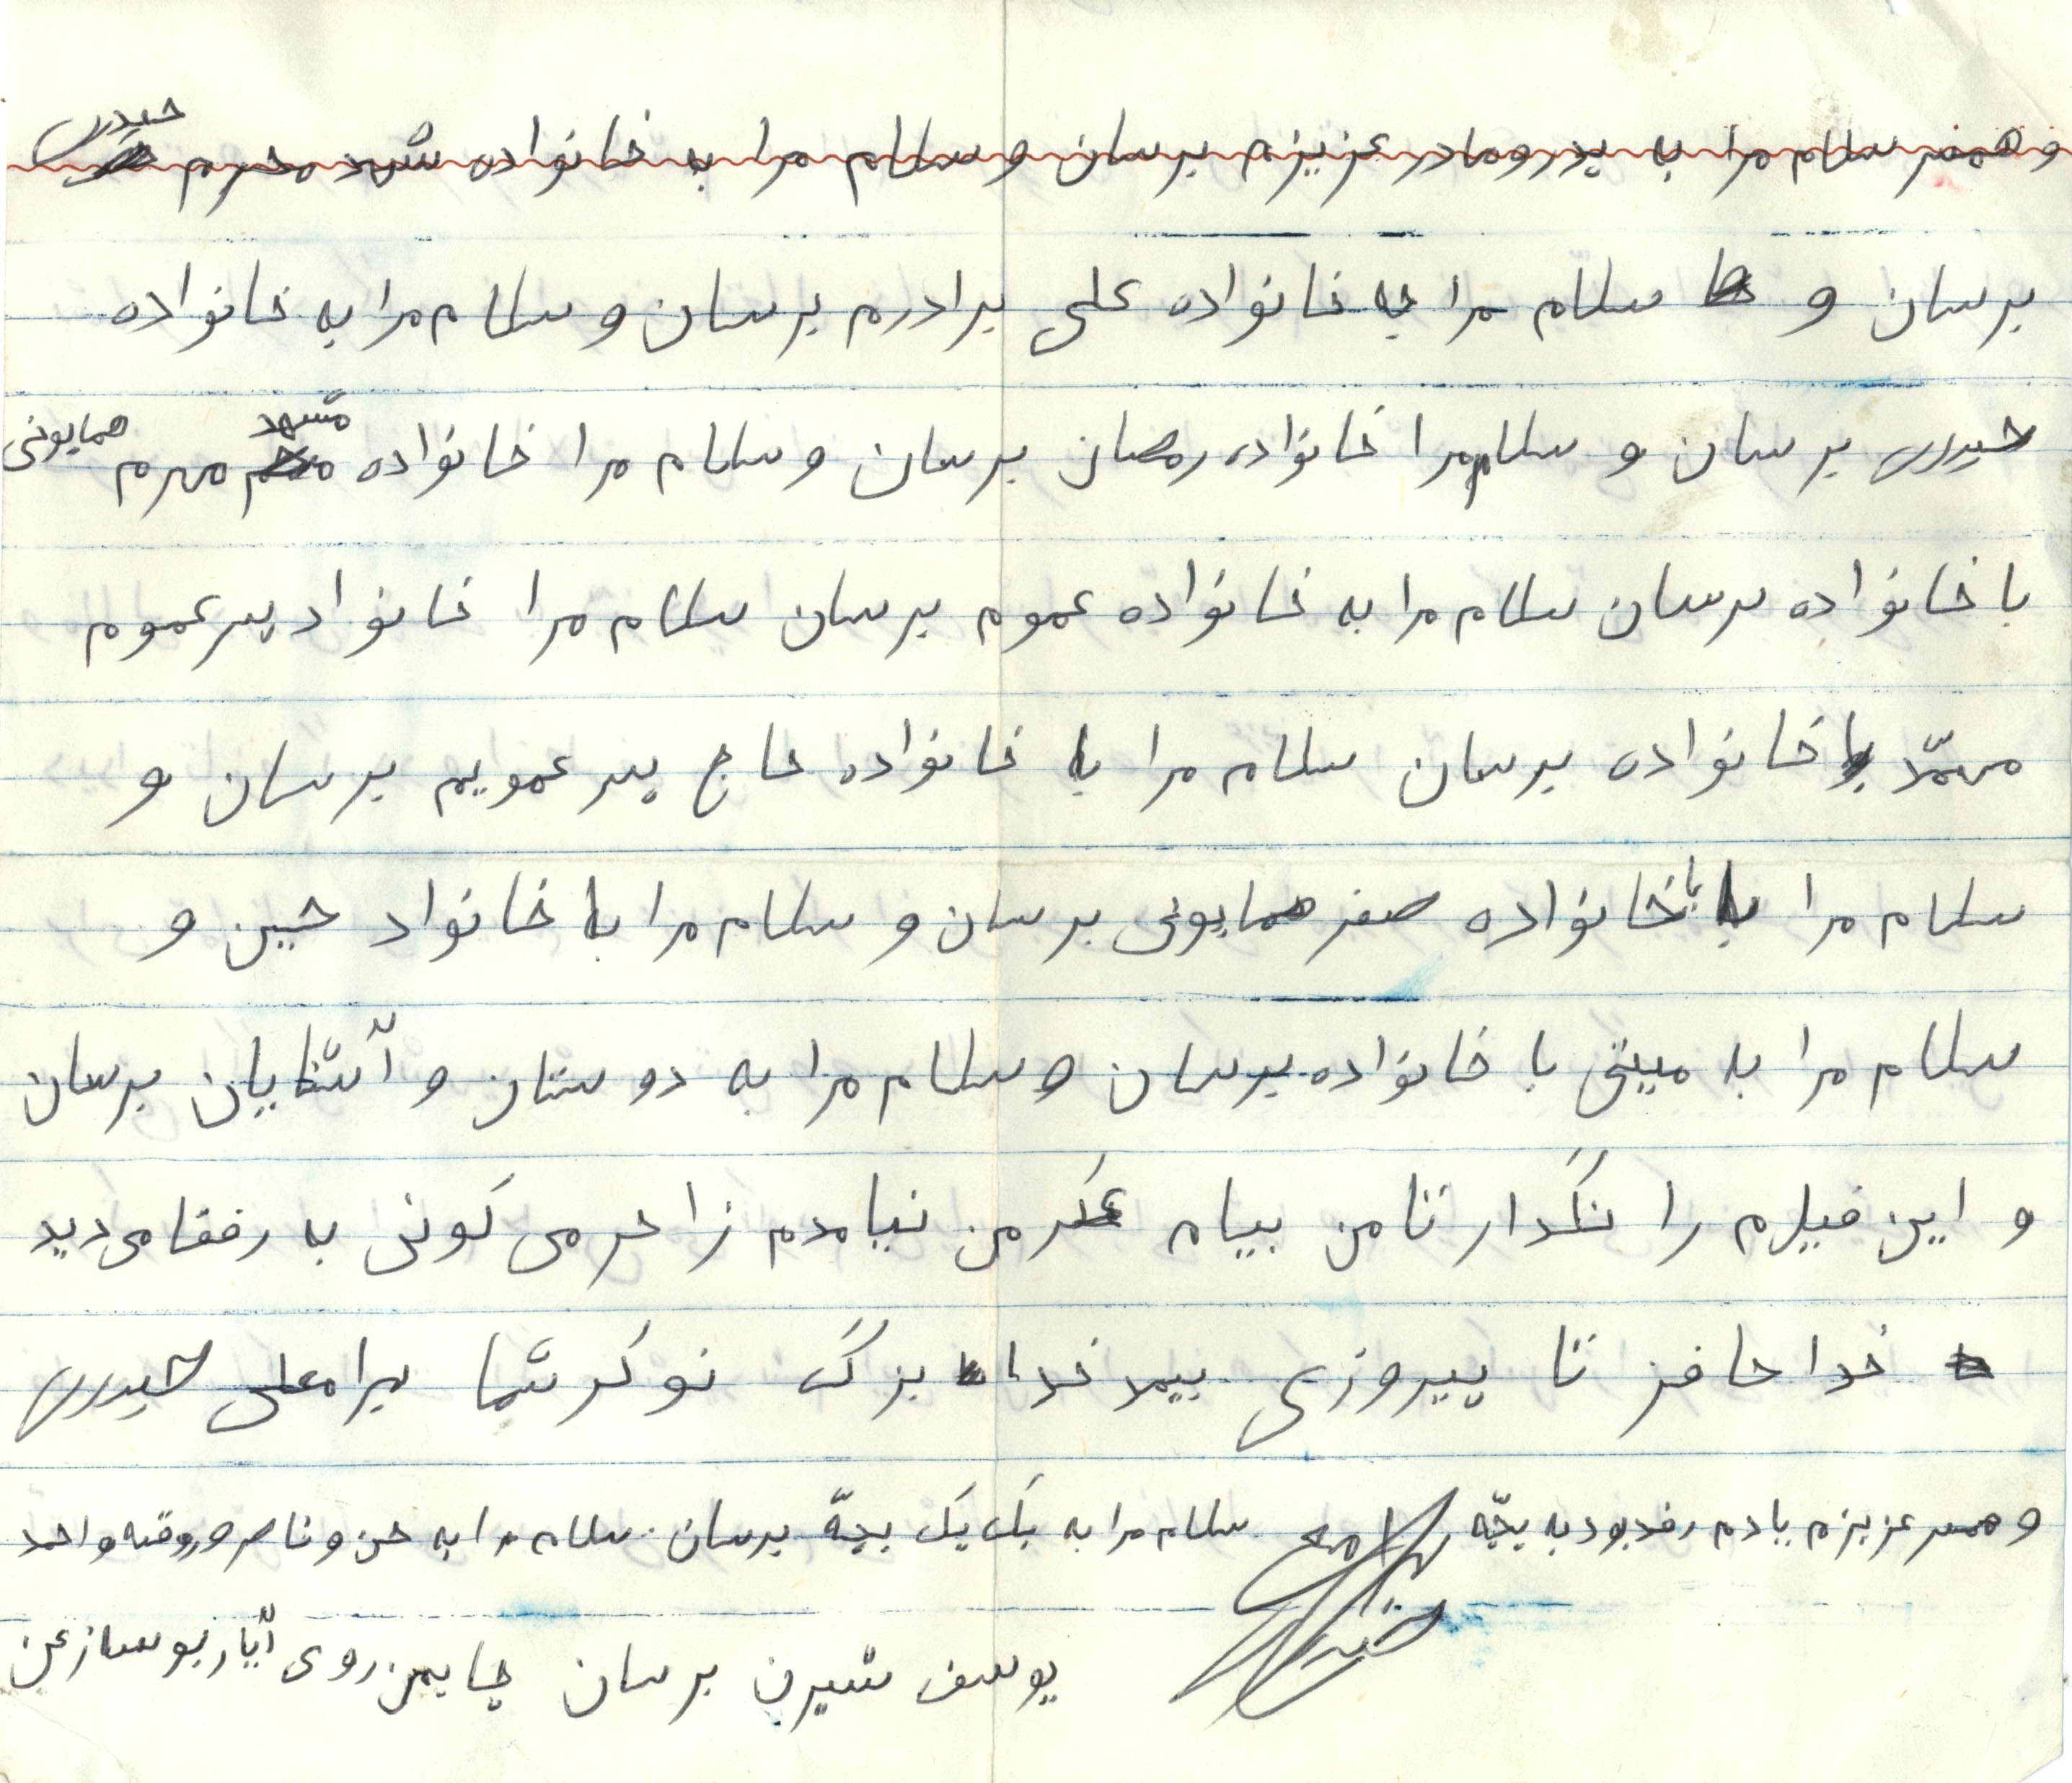 و همسر سلام مرا به پدر و مادر عزیزم برسان و سلام مرا به خانواده شهد محرم حیدری
برسان و سلام مرا به خانواده علی برادرم برسان و سلام مرا به خانواده
حیدری برسان و سلام مرا خانواده رمضان برسان و سلام مرا خانواده مشهد محرم همایونی
با خانواده برسان سلام مرا به خانواده عموم برسان سلام مرا خانواد پسر عموم
محمّد با خانواده برسان سلام مرا با خانواده حاج پسر عمویم برسان و
سلام مرا با خانواده صفر همایونی برسان و سلام مرا با خانواد حسین و
سلام مرا به میتی با خانواده برسان و سلام مرا به دوستان و آشنایان برسان
و این فیلم را نگدار تا من بیام عگر من نیامدم زاحر می کونی به رفقا می دید
خدا حافز تا پیروزی بیمد خدا بزرگ نوکر شما بیرامعلی حیدری
و همسر عزیزم یادم رفد بود به بچّه سلام مرا به یک یک بچّه برسان سلام مرا به حسن و ناصر و روقیه و احمد
یوسف شیرن برسان روی